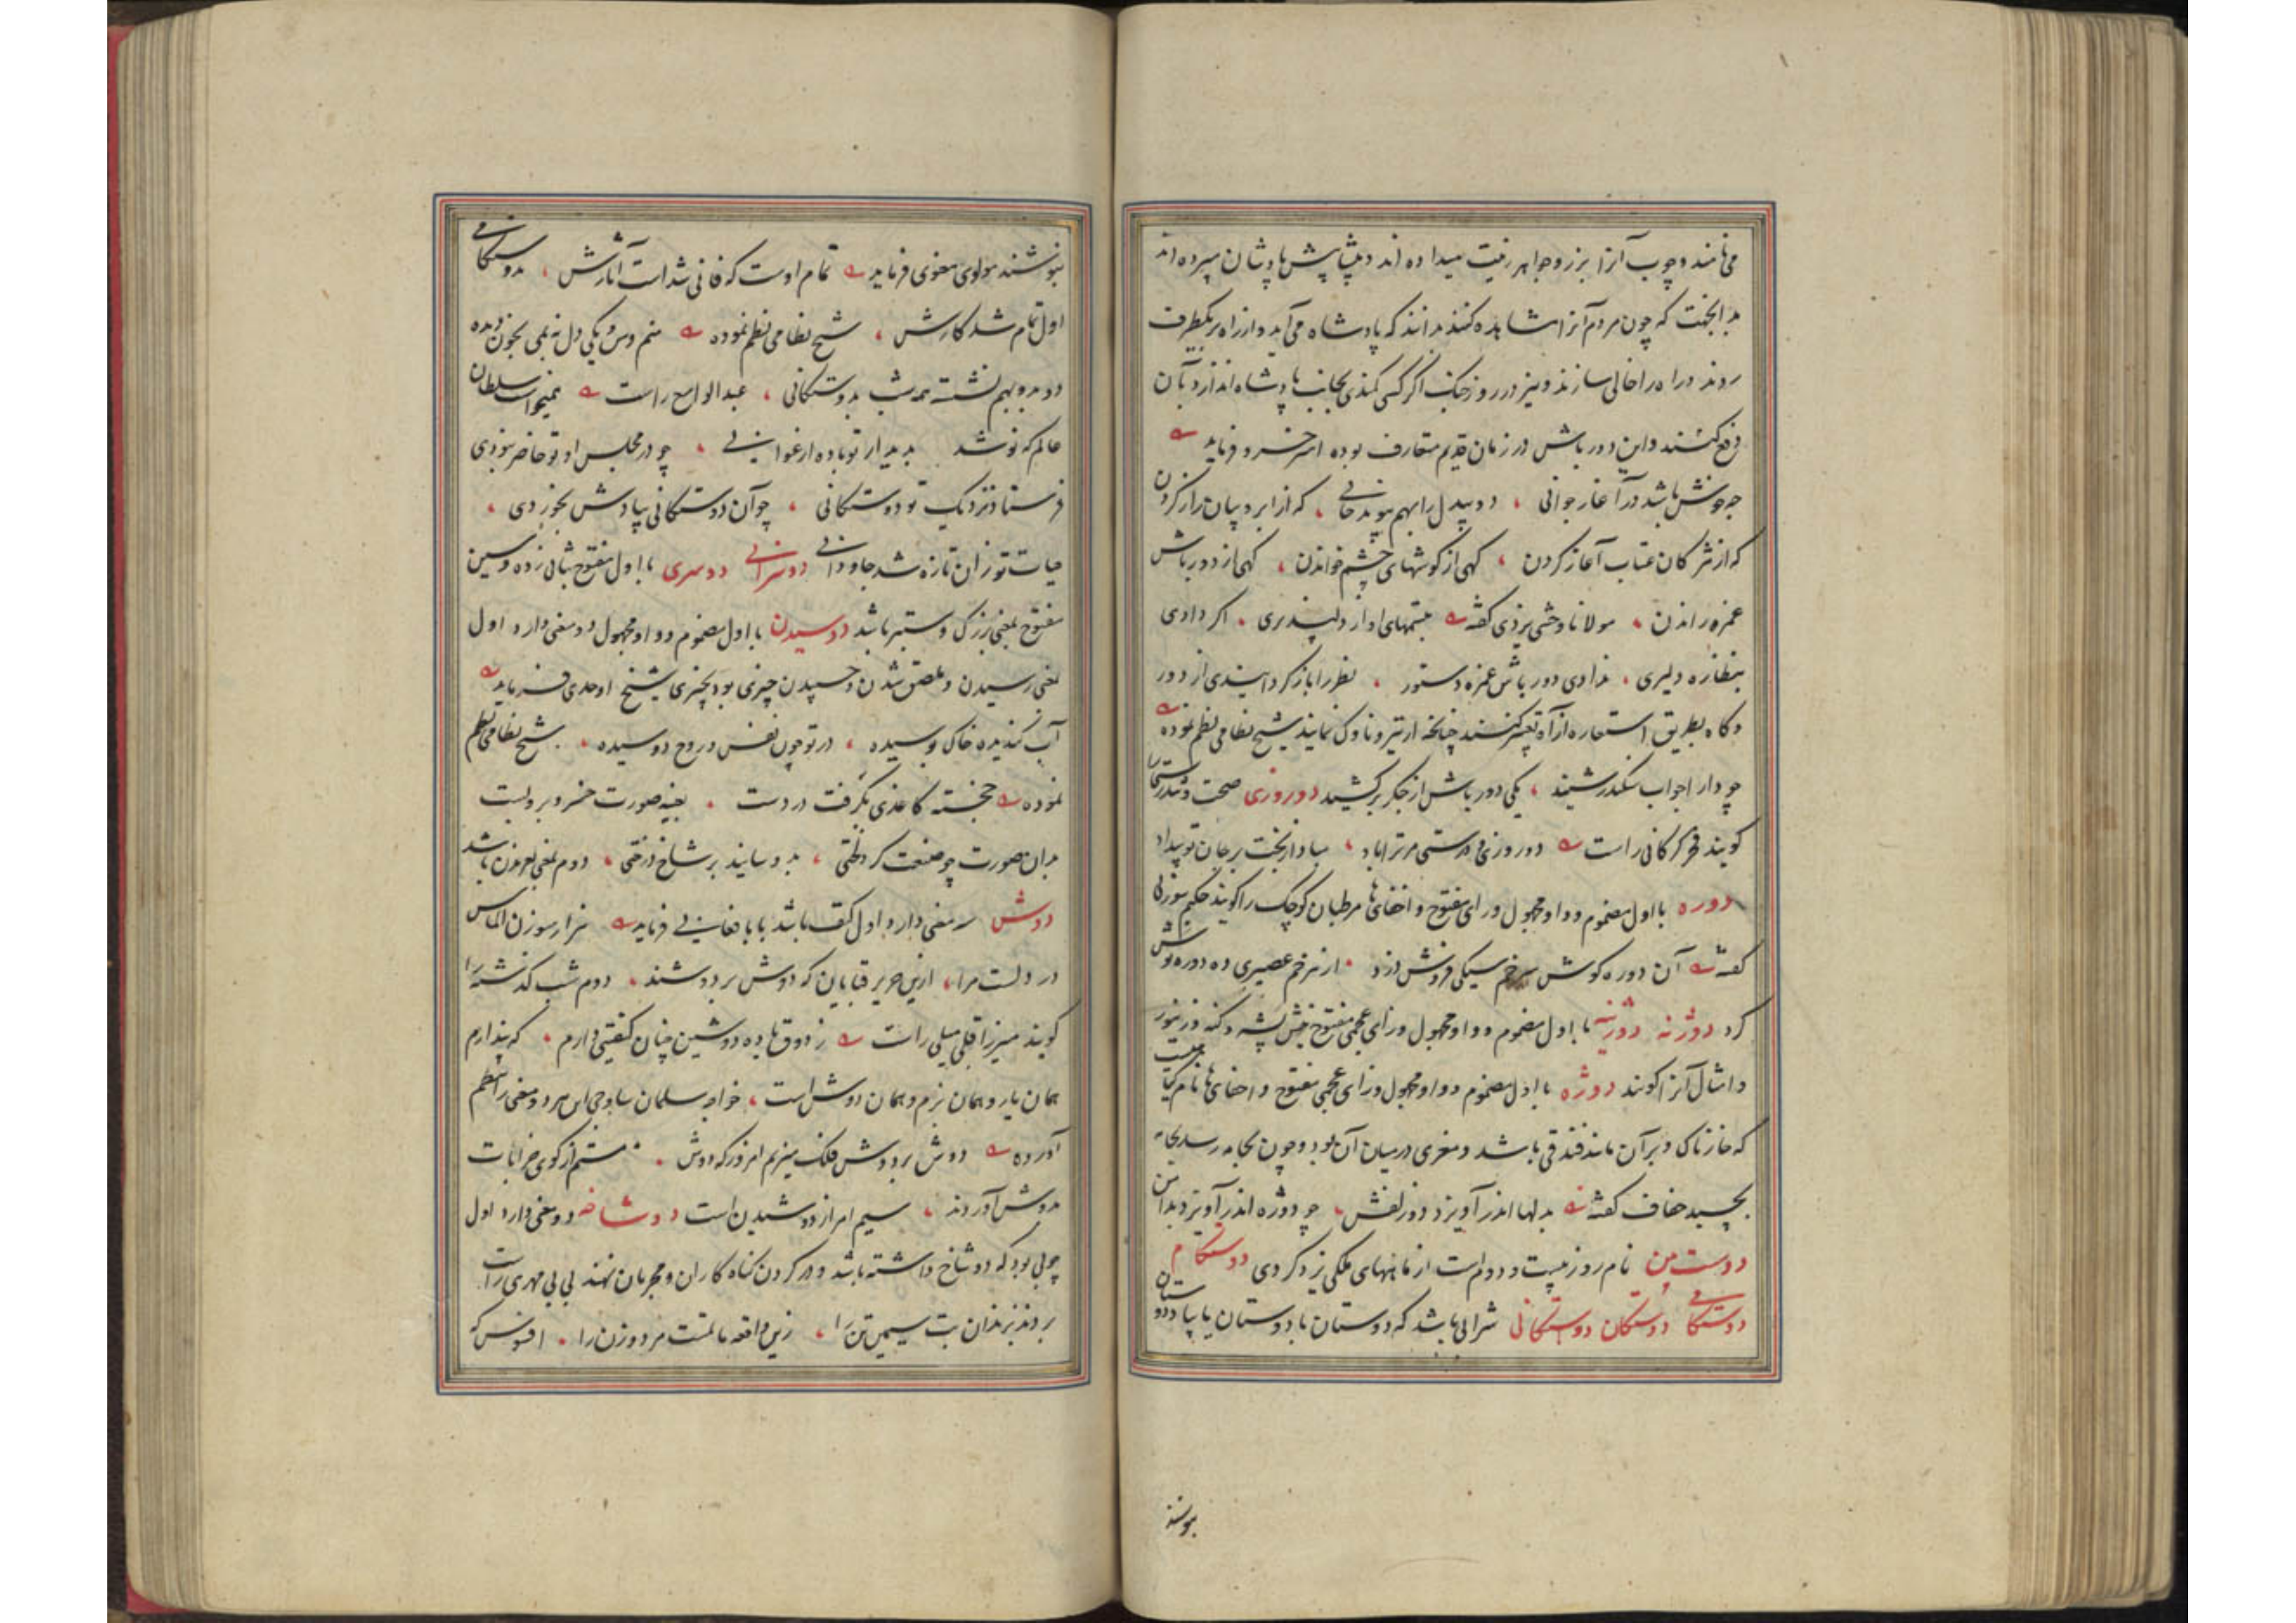 می‌نامند و چوب آنرا بزر و جواهر زینت میداده اند و پیشاپیش پادشاهان میبرده اند
بدانجهت که چون مردم آنرا مشاهده کنند بدانند که پادشاه می‌آید و از راه بر یکطرف
روند و راه را خالی سازند و نیز در روز جنگ اگر کسی کمندی بجانب پادشاه اندازد بآن
دفع کنند و این دورباش در زمان قدیم متعارف بوده امیر خسرو فرماید
چه خوش باشد در آغاز جوانی دو بیدل را بهم پیوند جانی که از ابرو بیان راز کردن
که از مژگان عتاب آغاز کردن گهی از گوشهای چشم خواندن گهی از دورباش
غمزه راندن مولانا وحشی یزدی گفته بچشمهای او از دلپذیری اگر دادی
بنظاره دلیری ندادی دورباش غمزه دستور نظر را باز گرداندی از دور
و گاه بطریق استعاره از آه تعبیر کنند چنانچه از تیر و ناوک نمایند شیخ نظامی نظم نموده
چو دارا جواب سکندر شنید یکی دورباش از جگر برکشید دوروزی صحت و تندرستی را
گویند فخر گرگانی راست دوروزی و درستی مر ترا باد مبادا از بخت بر جان تو بیداد
دوره با اول مضموم و واو مجهول و رای مفتوح و اخفای ها مرطبان کوچک را گویند حکیم سوزنی
گفته آن دوره گوش سر خم سیکی فروش دزد از نر خم عصیری ده دوره نوش
کرد دوژنه دوژینه با اول مضموم و واو مجهول و زای عجمی مفتوح نیش پشه و کنه و زنبور
و امثال آنرا گویند دوژه با اول مضموم و واو مجهول و زای عجمی مفتوح و اخفای ها نام گیاهیست
که خارناک و بر آن مانند فندقی باشد و مغزی درمیان آن بود و چون بجامه رسد بجامه
بچسبد خفاف گفته بدلها اندر آویزد دو زلفش چو دوژه اندر آویزد بدامن
دوست بین نام روز بیست و دوم است از ماههای ملکی یزدگردی دوستکام
دوستکامی دوستکان دوستکانی شرابی باشد که دوستان با دوستان یا بیاد دوستان
بنوشند
بنوشند مولوی معنوی فرماید تمام اوست که فانی شد است آثارش بدوستکامی
اول تمام شد کارش شیخ نظامی نظم نموده منم و من و یکی دل نیمی بخون دیده
دو بدو بهم نشسته همه شب بدوستکانی عبدالواسع راست نمیخواست سلطان
عالم که نوشد بدیدار تو باده ارغوانی چو در مجلس او تو حاضر نبودی
فرستاد نزدیک تو دوستکانی چو آن دوستکانی بیادش بخوردی
حیات تو زان تازه شد جاودانی دوسرانی دوسری با اول مفتوح بثانی زده و سین
مفتوح بمعنی بزرگ و ستبر باشد دوسیدن با اول مضموم و واو مجهول دو معنی دارد اول
بمعنی رسیدن و ملصق شدن و چسپیدن چیزی بود بچیزی شیخ اوحدی فرماید
آب گندیده خاک پوسیده در تو چون نفس و روح دوسیده شیخ نظامی نظم
نموده خجسته کاغذی بگرفت در دست بعینه صورت خسرو برو بست
بدان صورت چو صنعت کرد لختی بدوسانید بر شاخ درختی دوم بمعنی لغزیدن باشد
دوش سه معنی دارد اول کتف باشد بابا فغانی فرماید هزار سوزن الماس
در دلست مرا ازین حریر قبایان که دوش بردوشند دوم شب گذشته را
گویند میرزا قلی میلی راست ز ذوق باده دوشین چنان کیفیتی دارم که پندارم
همان یار و همان بزم و همان دوش است خواجه سلمان ساوجی این هر دو معنی را نظم
آورده دوش بر دوش فلک میزنم امروز که دوش مستم از کوی خرابات
بدوش آوردند سیم امر از دوشیدن است دوشاخه دو معنی دارد اول
چوبی بود که دو شاخ داشته باشد و در گردن گناه کاران و مجرمان نهند بی بی مهری راست
بردند بزندان بت سیمین تن را زین واقعه ماتمست مرد و زن را افسوس که